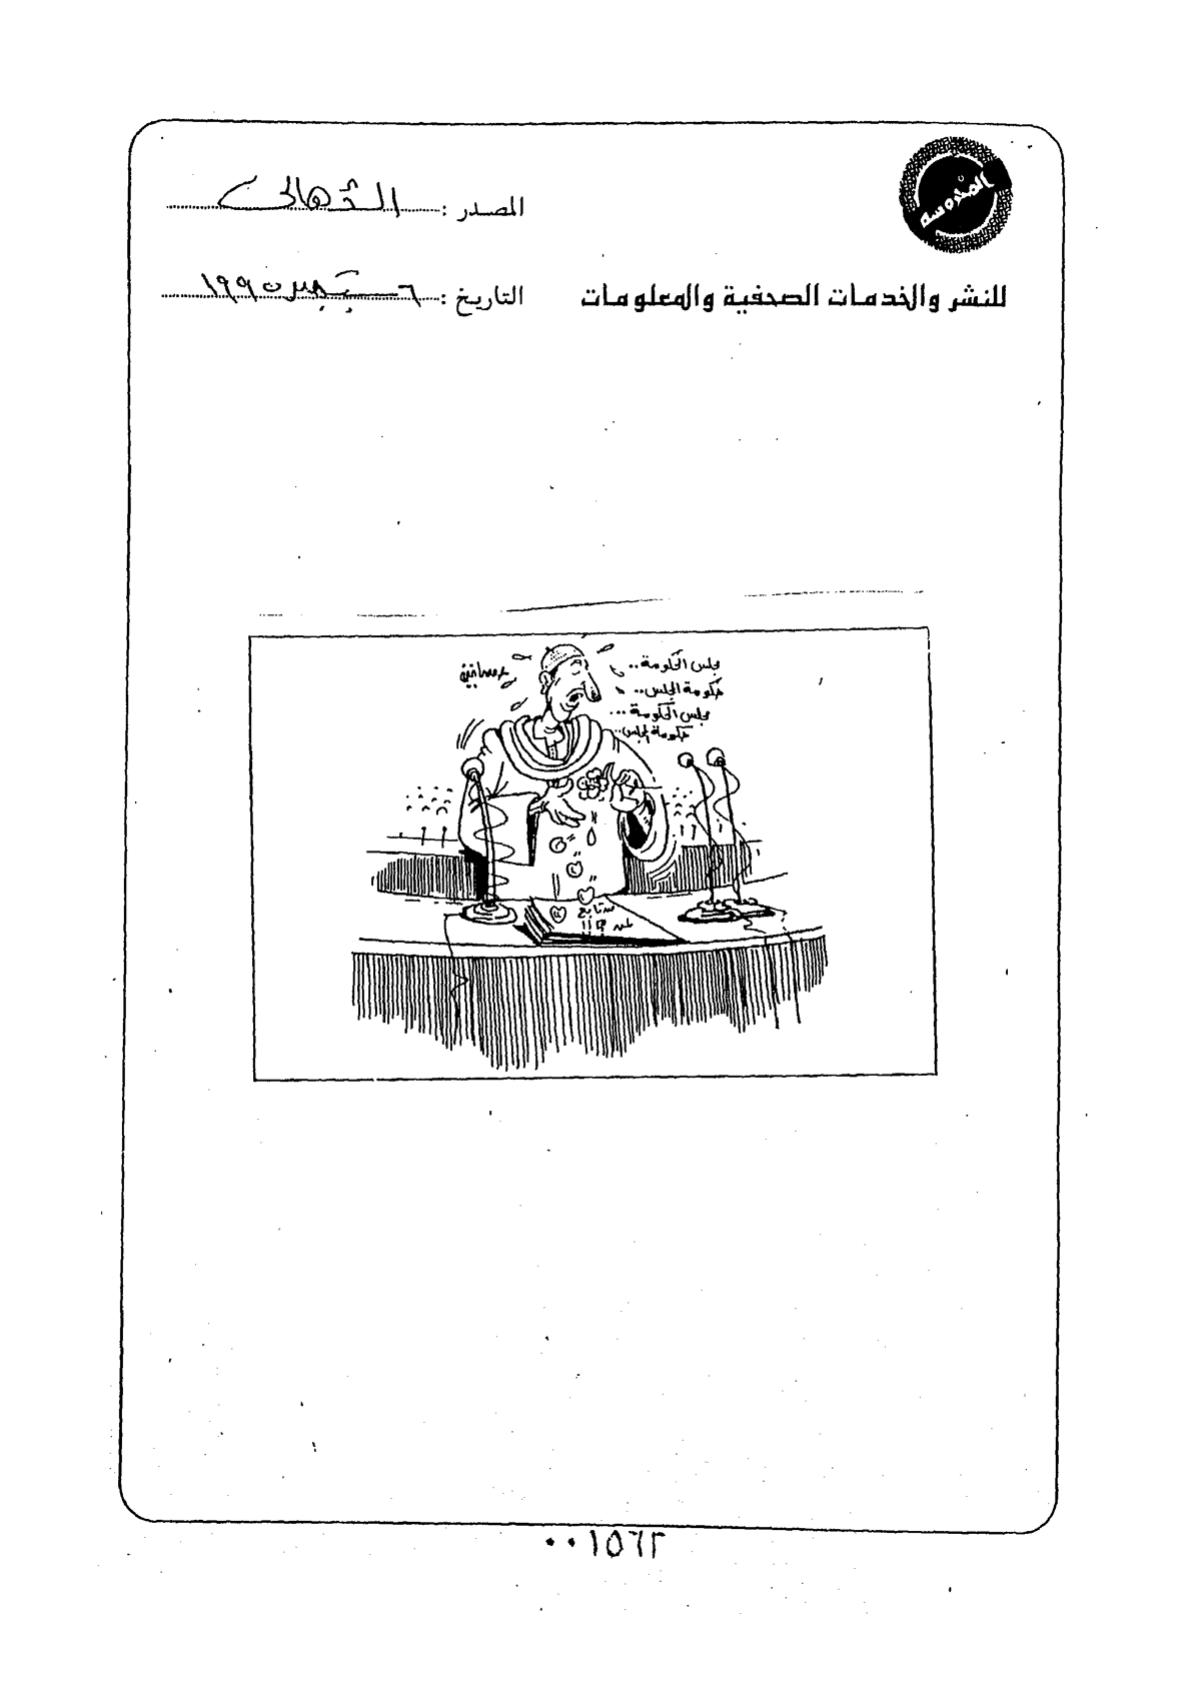 المحروسة
المصدر : الأهالى
للنشر والخدمات الصحفية والمعلومات
التاريخ : ٦ سبتمبر ١٩٩٠
مجلس الحكومة ..
حكومة المجلس ..
مجلس الحكومة ...
حكومة المجلس ..
٠٠١٥٦٢